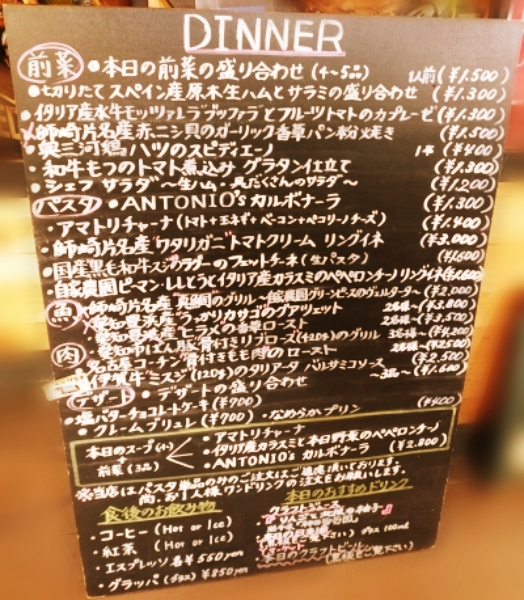 DINNER
前菜 ●本日の前菜の盛り合わせ (4~5品) 1人前 (¥1.500)
●切りたてスペイン産原木生ハムとサラミの盛り合せ (¥1.300)
・イタリア産水牛モッツァレラブッファラとフルーツトマトのカプレーゼ (¥1.300)
・師崎片名産 赤ニシ貝のガーリック香草パン粉焼き (¥1.500)
・奥三河鶏ハツのスピディエーノ 1本 (¥400)
・和牛もつのトマト煮込み グラタン仕立て (¥1.300)
・シェフサラダ ~生ハム・具だくさんのサラダ~ (¥1.200)
パスタ ●ANTONIO'sカルボナーラ (¥1.300)
・アマトリチャーナ (トマト+玉ねぎ+ベーコン+ペコリーノチーズ) (¥1.400)
・師崎片名産ワタリガニトマトクリーム リングイネ (¥3.000)
・国産黒毛和牛スジのラグーのフェットチーネ (生パスタ) (¥1600)
・自家農園ピーマン ししとうとイタリア産カラスミのペペロンチーノ リングイネ (¥1.600)
魚 師崎片名産 真鯛のグリル ~自家農園グリーンピースのヴェルタータ~ (¥2.000)
愛知豊浜産 うっかりカサゴのアクアリエット 2名様~ (¥3.800)
愛知豊浜産 ヒラメの香草ロースト 2名様~ (¥3.500)
肉 豚骨付きリブロース(420g)のグリル 3名様~ (¥4200)
名古屋コーチン骨付きもも肉のロースト 2名様~ (¥2500)
伊賀牛ミスジ(120g)のタリアータ バルサミコソース (¥2.500)
デザート ・デザートの盛り合わせ ~3品~ (¥1.600)
・塩バターチョコレートケーキ (¥700)
・クレームブリュレ (¥700) ・なめらかプリン (¥400)
本日のスープ
+
前菜(3品)
・アマトリチャーナ
・イタリア産カラスミと本日野菜のペペロンチーノ
・ANTONIO'sカルボナーラ (¥2.800)
※当店はパスタ単品のみのご注文はご遠慮頂いております。
尚、お1人様ワンドリンクの注文をお願いします。
食後のお飲み物
・コーヒー (Hot or Ice)
・紅茶 (Hot or Ice)
・エスプレッソ 各¥550yen
・グラッパ (グラス) ¥850yen
本日のおすすめドリンク
グラス 100ml
本日のクラフトビール